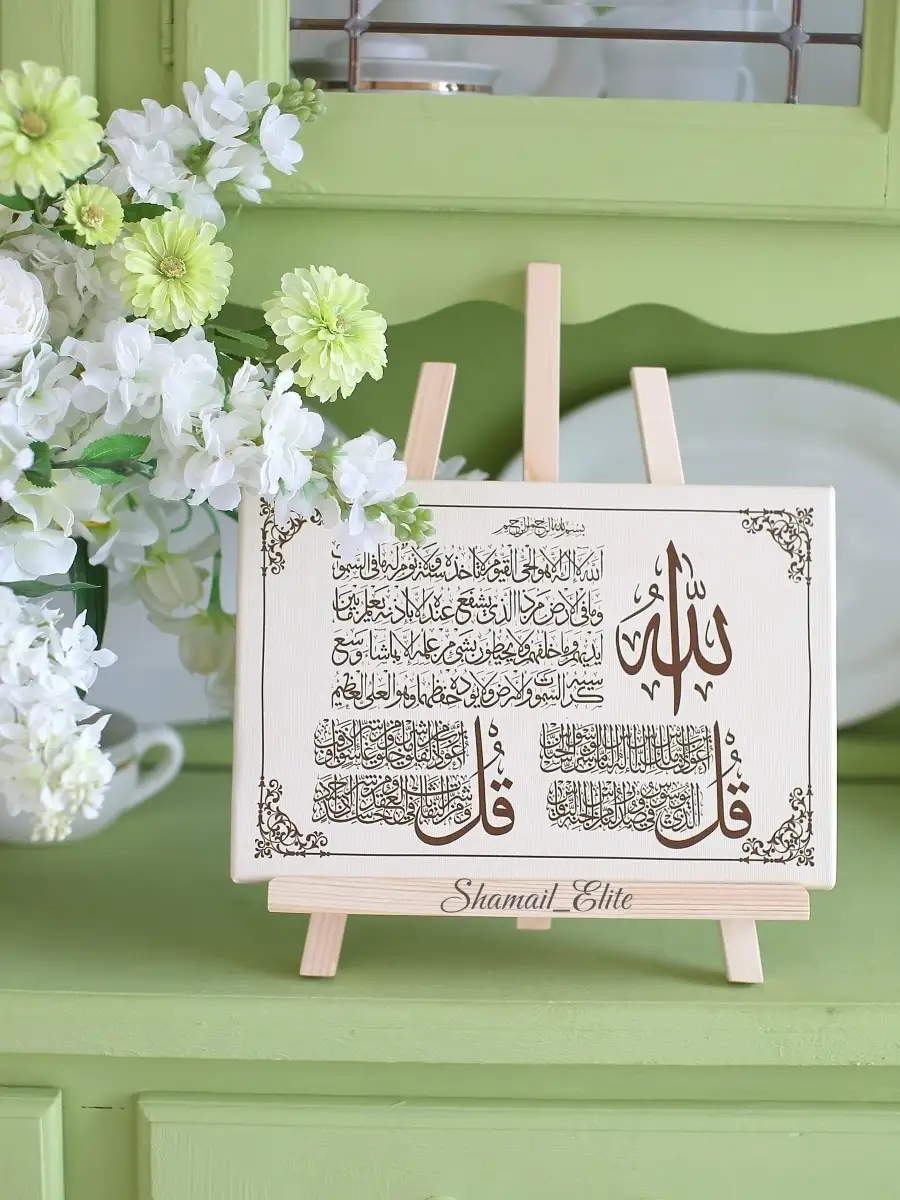 بسم الله الرحمن الرحيم
الله
الله لا اله الا هو الحي القيوم لا تأخذه سنة ولا نوم له ما في السموات
وما في الارض من ذا الذي يشفع عنده الا باذنه يعلم ما بين
ايديهم وما خلفهم ولا يحيطون بشيء من علمه الا بما شاء وسع
كرسيه السموات والارض ولا يؤده حفظهما وهو العلي العظيم
قل اعوذ برب الناس ملك الناس اله الناس من شر الوسواس الخناس
الذي يوسوس في صدور الناس من الجنة والناس
قل اعوذ برب الفلق من شر ما خلق ومن شر غاسق اذا وقب
ومن شر النفاثات في العقد ومن شر حاسد اذا حسد
Shamail_Elite